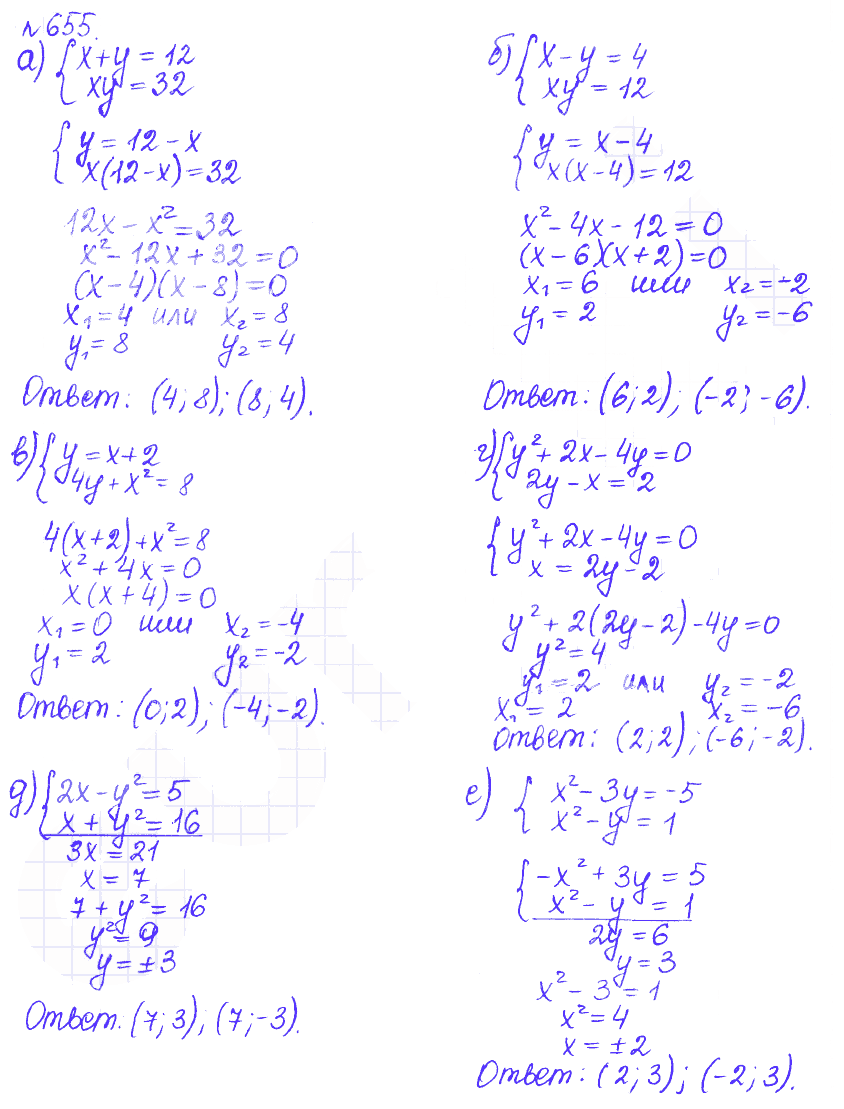 №655.
а) { x+y = 12
xy = 32
{ y = 12 - x
x(12-x) = 32
12x - x² = 32
x² - 12x + 32 = 0
(x-4)(x-8) = 0
x₁ = 4 или x₂ = 8
y₁ = 8 y₂ = 4
Ответ: (4; 8); (8; 4).
б) { x - y = 4
xy = 12
{ y = x - 4
x(x-4) = 12
x² - 4x - 12 = 0
(x-6)(x+2) = 0
x₁ = 6 или x₂ = -2
y₁ = 2 y₂ = -6
Ответ: (6; 2); (-2; -6).
в) { y = x+2
4y + x² = 8
4(x+2) + x² = 8
x² + 4x = 0
x(x+4) = 0
x₁ = 0 или x₂ = -4
y₁ = 2 y₂ = -2
Ответ: (0; 2); (-4; -2).
г) { y² + 2x - 4y = 0
2y - x = 2
{ y² + 2x - 4y = 0
x = 2y - 2
y² + 2(2y-2) - 4y = 0
y² = 4
y₁ = 2 или y₂ = -2
x₁ = 2 x₂ = -6
Ответ: (2; 2); (-6; -2).
д) { 2x - y² = 5
x + y² = 16
3x = 21
x = 7
7 + y² = 16
y² = 9
y = ±3
Ответ. (7; 3); (7; -3).
е) { x² - 3y = -5
x² - y = 1
{ -x² + 3y = 5
x² - y = 1
2y = 6
y = 3
x² - 3 = 1
x² = 4
x = ±2
Ответ: (2; 3); (-2; 3).